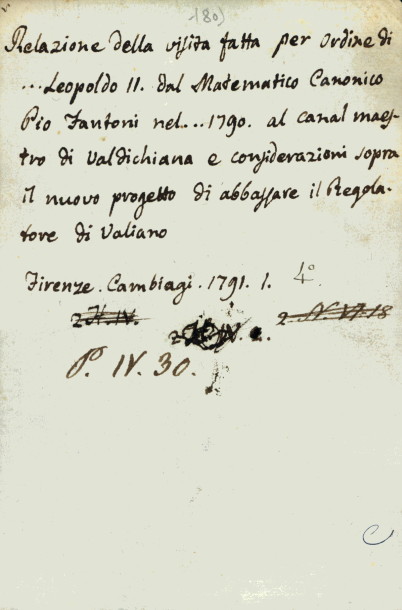 180)
Relazione della visita fatta per ordine di
... Leopoldo II. dal Matematico Canonico
Pio Fantoni nel... 1790. al canal maes-
tro di Valdichiana e considerazioni sopra
il nuovo progetto di abbassare il Regola-
tore di Valiano
Firenze. Cambiagi. 1791. 1. 4°
2 N. VI. 18
P. IV. 30.
C